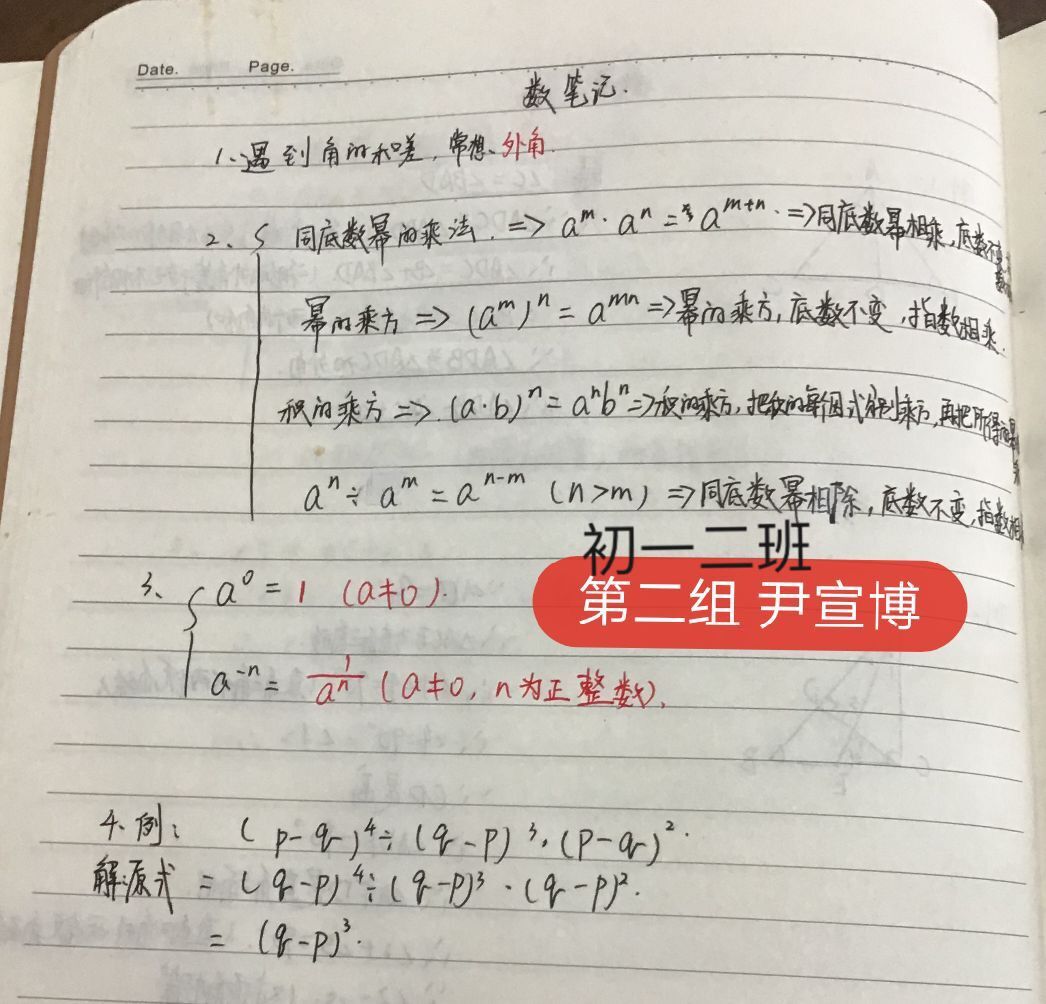 Date. Page.
数笔记.
1、遇到角的和差,常想、外角.
2、{ 同底数幂的乘法. => aᵐ·aⁿ = aᵐ⁺ⁿ. => 同底数幂相乘,底数不变
幂的乘方 => (aᵐ)ⁿ = aᵐⁿ => 幂的乘方,底数不变,指数相乘.
积的乘方 => (a·b)ⁿ = aⁿbⁿ => 积的乘方,把积的每个因式分别乘方,再把所得的幂
aⁿ ÷ aᵐ = aⁿ⁻ᵐ (n>m) => 同底数幂相除,底数不变,指数相
初一二班
3、{ a⁰ = 1 (a≠0).
第二组 尹宣博
a⁻ⁿ = 1/aⁿ (a≠0, n为正整数).
4、例: (p-q)⁴÷(q-p)³·(p-q)².
解源式 = (q-p)⁴÷(q-p)³·(q-p)².
= (q-p)³.